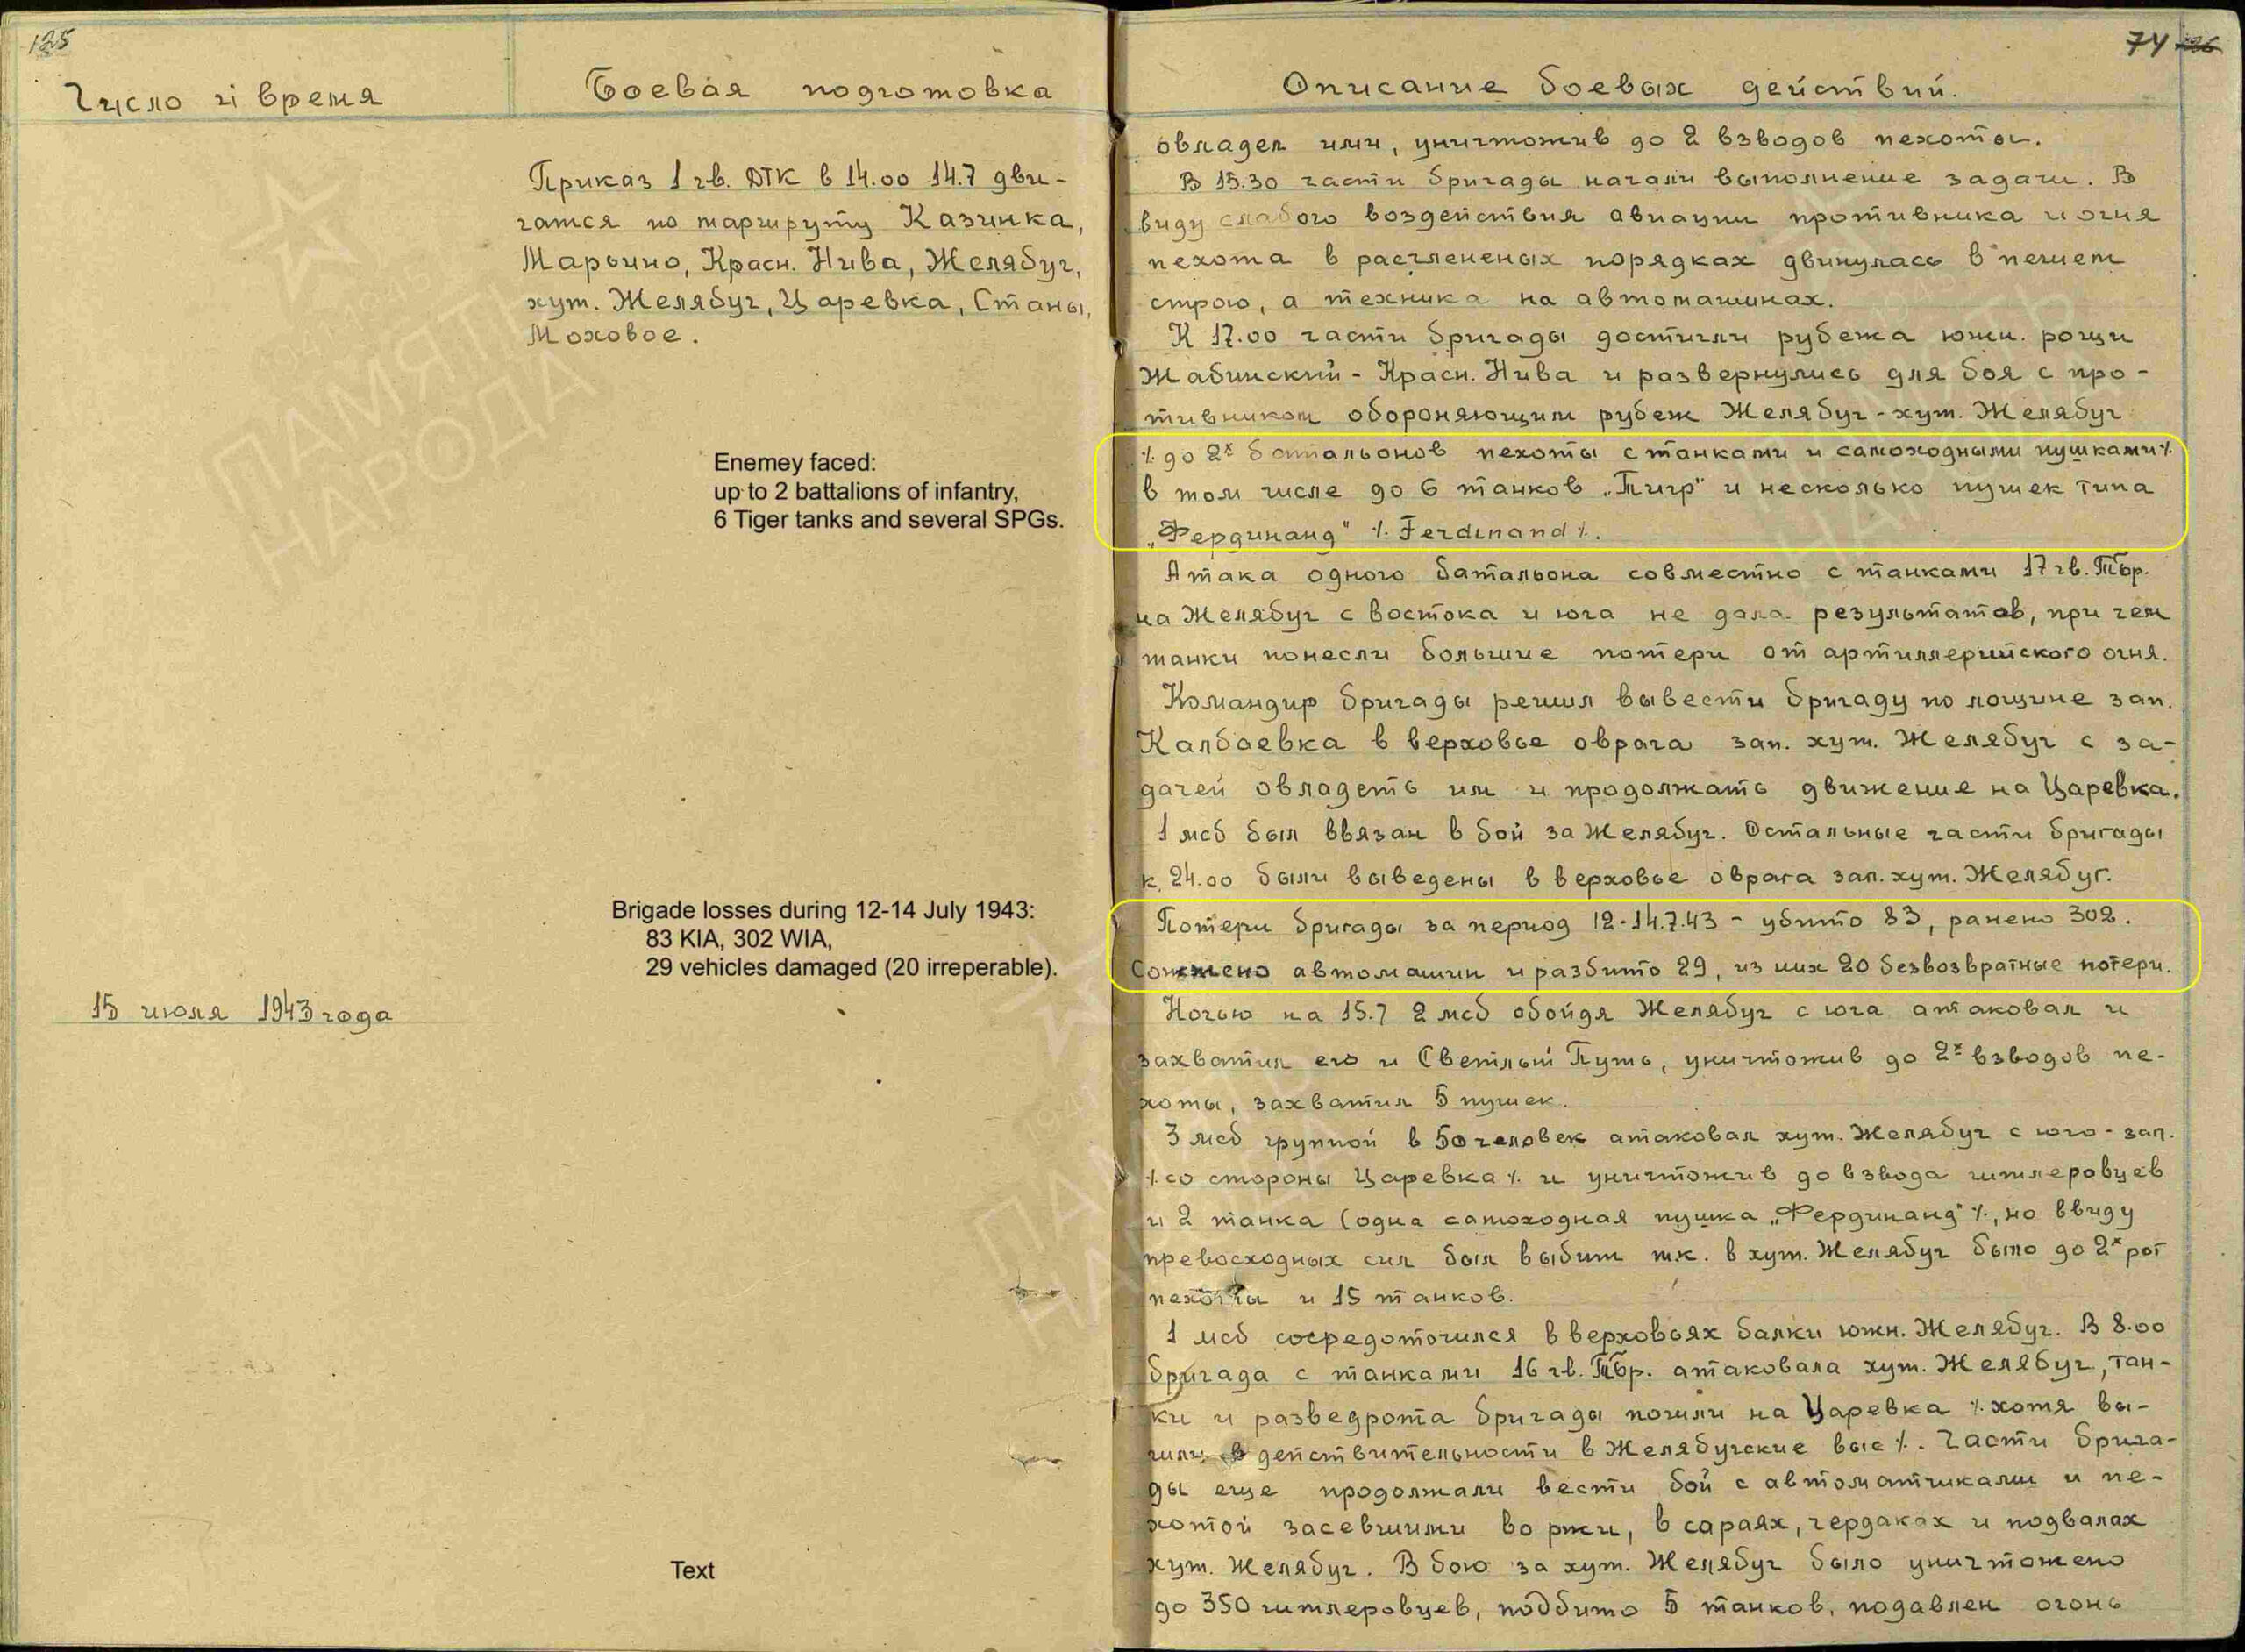 125
Число и время
Боевая подготовка
Приказ 1 гв. ДТК в 14.00 14.7 дви-
гатся по маршруту Казинка,
Марьино, Красн. Нива, Желябуг,
хут. Желябуг, Царевка, Станы,
Моховое.
Enemey faced:
up to 2 battalions of infantry,
6 Tiger tanks and several SPGs.
Brigade losses during 12-14 July 1943:
83 KIA, 302 WIA,
29 vehicles damaged (20 irreperable).
15 июля 1943 года
Text
74
Описание боевых действий.
овладел ими, уничтожив до 2 взводов пехоты.
В 15.30 части бригады начали выполнение задачи. В
виду слабого воздействия авиации противника и огня
пехота в расчлененых порядках двинулась в пешем
строю, а техника на автомашинах.
К 17.00 части бригады достигли рубежа южн. рощи
Жабинский - Красн. Нива и развернулись для боя с про-
тивником обороняющим рубеж Желябуг - хут. Желябуг
٪ до 2х батальонов пехоты с танками и самоходными пушками ٪
в том числе до 6 танков „Тигр" и несколько пушек типа
„Фердинанд" ٪ Ferdinand ٪.
Атака одного батальона совместно с танками 17 гв. Тбр.
на Желябуг с востока и юга не дала результатов, при чем
танки понесли большие потери от артиллерийского огня.
Командир бригады решил вывести бригаду по лощине зап.
Калбаевка в верховье оврага зап. хут. Желябуг с за-
дачей овладеть им и продолжать движение на Царевка.
1 мсб был ввязан в бой за Желябуг. Остальные части бригады
к 24.00 были выведены в верховье оврага зап. хут. Желябуг.
Потери бригады за период 12-14.7.43 - убито 83, ранено 302.
Сожжено автомашин и разбито 29, из них 20 безвозвратные потери.
Ночью на 15.7 2 мсб обойдя Желябуг с юга атаковал и
захватил его и Светлый Путь, уничтожив до 2х взводов пе-
хоты, захватил 5 пушек.
3 мсб группой в 50 человек атаковал хут. Желябуг с юго-зап.
٪ со стороны Царевка ٪ и уничтожив до взвода гитлеровцев
и 2 танка (одна самоходная пушка „Фердинанд" ٪, но ввиду
превосходных сил был выбит т.к. в хут. Желябуг было до 2х рот
пехоты и 15 танков.
1 мсб сосредоточился в верховьях балки южн. Желябуг. В 8.00
бригада с танками 16 гв. Тбр. атаковала хут. Желябуг, тан-
ки и разведрота бригады пошли на Царевка ٪ хотя вы-
шли в действительности в Желябугские выс ٪. Части брига-
ды еще продолжали вести бой с автоматчиками и пе-
хотой засевшими во ржи, в сараях, чердаках и подвалах
хут. Желябуг. В бою за хут. Желябуг было уничтожено
до 350 гитлеровцев, подбито 5 танков, подавлен огонь
ПАМЯТЬ
НАРОДА
ПАМЯТЬ
НАРОДА